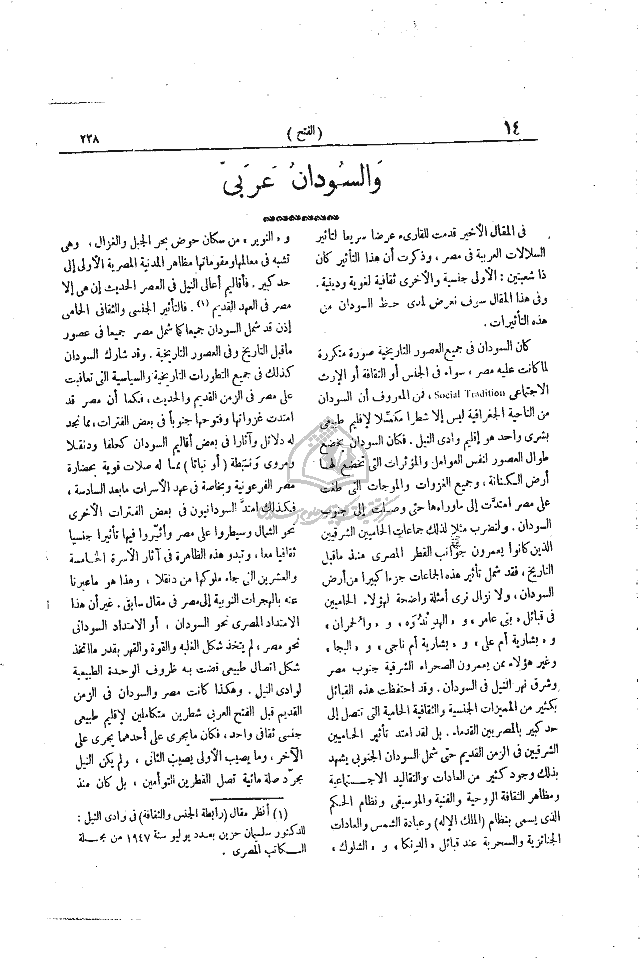 ١٤
( الفتح )
٢٣٨
والسودان عربى
فى المقال الأخير قدمت للقارىء عرضا سريعا لتأثير
السلالات العربية فى مصر ، وذكرت أن هذا التأثير كان
ذا شعبتين : الأولى جنسية والأخرى ثقافية لغوية ودينية .
وفى هذا المقال سوف نعرض لمدى حظ السودان من
هذه التأثيرات .
كان السودان فى جميع العصور التاريخية صورة متكررة
لما كانت عليه مصر ، سواء فى الجنس أو الثقافة أو الإرث
الاجتماعى Social Tradition ، فمن المعروف أن السودان
من الناحية الجغرافية ليس إلا شطرا مكملا لإقليم طبيعى
بشرى واحد هو إقليم وادى النيل . فكان السودان يخضع
طوال العصور لنفس العوامل والمؤثرات التى تخضع لها
أرض الكنانة ، وجميع الغزوات والموجات التى طغت
على مصر امتدت إلى ماوراءها حتى وصلت إلى جنوب
السودان . ولنضرب مثلا لذلك جماعات الحاميين الشرقيين
الذين كانوا يعمرون جوانب القطر المصرى منذ ماقبل
التاريخ ، فقد شمل تأثير هذه الجماعات جزءا كبيرا من أرض
السودان ، ولا نزال نرى أمثلة واضحة لهؤلاء الحاميين
فى قبائل « بنى عامر ، و « الهدندوه ، و « الحمران ،
و « بشارية أم على ، و « بشارية أم ناجى ، و « البجا ،
وغير هؤلاء من يعمرون الصحراء الشرقية جنوب مصر
وشرق نهر النيل فى السودان . وقد احتفظت هذه القبائل
بكثير من المميزات الجنسية والثقافية الحامية التى تتصل إلى
حد كبير بالمصريين القدماء . بل لقد امتد تأثير الحاميين
الشرقيين فى الزمن القديم حتى شمل السودان الجنوبى يشهد
بذلك وجود كثير من العادات والتقاليد الاجتماعية
ومظاهر الثقافة الروحية والفنية والموسيقى ونظام الحكم
الذى يسمى بنظام (الملك الإله) وعبادة الشمس والعادات
الجنائزية والسحرية عند قبائل « الدنكا ، و « الشلوك ،
و « النوير » من سكان حوض بحر الجبل والغزال ، وهى
تشبه فى معالمها ومقوماتها مظاهر المدنية المصرية الأولى إلى
حد كبير . فأقاليم أعالى النيل فى العصر الحديث إن هى إلا
مصر فى العهد القديم (١) . فالتأثير الجنسى والثقافى الحامى
إذن قد شمل السودان جميعا كما شمل مصر جميعا فى عصور
ماقبل التاريخ وفى العصور التاريخية . وقد شارك السودان
كذلك فى جميع التطورات التاريخية والسياسية التى تعاقبت
على مصر فى الزمن القديم والحديث ، فكما أن مصر قد
امتدت غزواتها وفتوحها جنوبا فى بعض الفترات ، مما نجد
له دلائل وآثارا فى بعض أقاليم السودان كحلفا ودنقلا
ومروى ونبتطة (أو نباتا) مما له صلات قوية بحضارة
مصر الفرعونية وبخاصة فى عهد الأسرات مابعد السادسة ،
فكذلك امتد السودانيون فى بعض الفترات الأخرى
نحو الشمال وسيطروا على مصر وأثروا فيها تأثيرا جنسيا
ثقافيا معا ، وتبدو هذه الظاهرة فى آثار الأسرة الخامسة
والعشرين التى جاء ملوكها من دنقلا ، وهذا هو ماعبرنا
عنه بالهجرات النوبية إلى مصر فى مقال سابق . غير أن هذا
الامتداد المصرى نحو السودان ، أو الامتداد السودانى
نحو مصر ، لم يتخذ شكل الغلبه والقوة والقهر بقدر ما اتخذ
شكل اتصال طبيعى قضت به ظروف الوحدة الطبيعية
لوادى النيل . وهكذا كانت مصر والسودان فى الزمن
القديم قبل الفتح العربى شطرين متكاملين لإقليم طبيعى
جنسى ثقافى واحد ، فكان مايجرى على أحدهما يجرى على
الآخر ، وما يصيب الأولى يصيب الثانى ، ولم يكن النيل
مجرد صلة مائية تصل القطرين التوأمين ، بل كان منذ
(١) أنظر مقال (رابطة الجنس والثقافة) فى وادى النيل :
للدكتور سليمان حزين بعدد يوليو سنة ١٩٤٧ من مجلة
الكاتب المصرى .